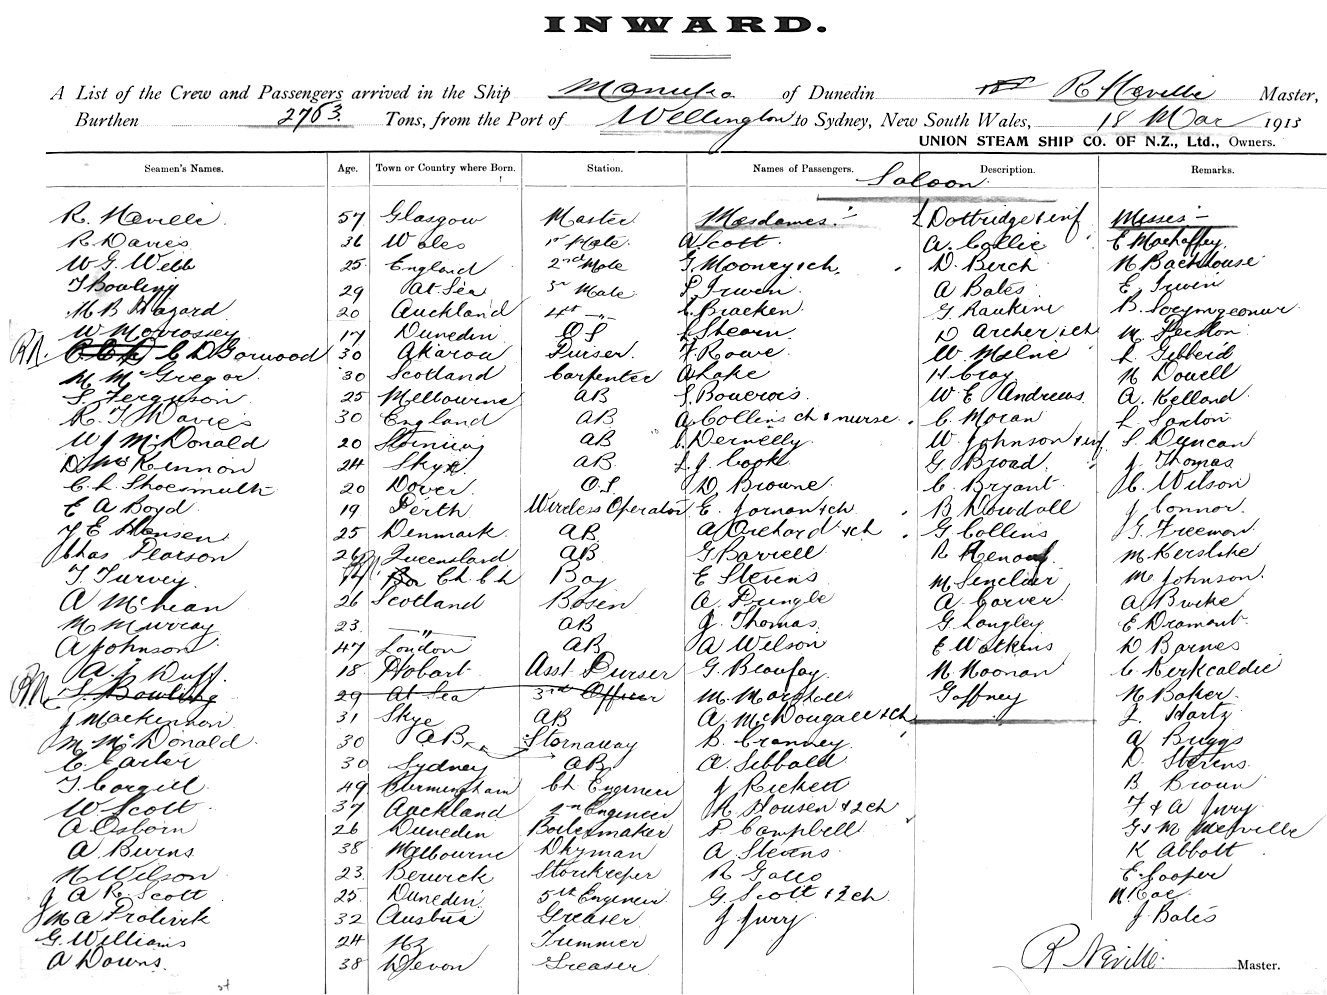 INWARD.
A List of the Crew and Passengers arrived in the Ship Manuka of Dunedin R Neville Master,
Burthen 2763. Tons, from the Port of Wellington to Sydney, New South Wales, 18 Mar 1913
UNION STEAM SHIP CO. OF N.Z., Ltd., Owners.
Seamen's Names. Age. Town or Country where Born. Station. Names of Passengers. Description. Remarks.
Saloon.
R. Neville. 57 Glasgow Master Mesdames:- L Dottridge & inf Misses:-
R Davies 36 Wales 1st Mate. A Scott. A. Collie E Mahaffey.
W G. Webb 25 England 2nd Mate G Mooney & ch. D. Berch N Backhouse
T Bowling 29 At Sea 3rd Mate Irwen A Bates E Irwin
M B Hazard 20 Auckland 4th -"- Bracken G Rankine B. Scrymgeour
W Morrossey 17 Dunedin OS Shearn D Archer & ch M
C D Gorwood 30 Akaroa Purser. F. Rowe W. Milne L Gibberd
M McGregor. 30 Scotland Carpenter A Lake H Gray N Dowell
S Ferguson 25 Melbourne AB S W E Andrews A. Kelland
R. T Davies 30 England AB A Collins ch & nurse. C Moran L Saxton
W J McDonald 20 AB Dernelly W Johnson & inf. S Duncan
D McKinnon 24 Skye AB. J. Cook G. Broad. J. Thomas
C L Shoesmith 20 Dover. O.S. D Browne C. Bryant C. Wilson
E A Boyd 19 Perth Wireless Operator E. Jornan & ch B Dowdall J Connor.
T E Hansen 25 Denmark AB A Orchard & ch G Collins G. Freeman
Chas Pearson 26 Queensland AB G Barrell R Renouf M Kerslake
T. Turvey. Ch Ch Boy E Stevens M Sinclair M Johnson.
A McLean 26 Scotland Bosen A. Pringle A Carver A Burke
M Murray 23. -"- AB J. Thomas. G. Langley E Dramant.
A Johnson 47 London AB A Wilson E Watkins D Barnes
A. J Duff. 18 Hobart Asst Purser G. Beaufoy N Noonan C Kirkcaldie
T. Bowling 29 At Sea 3rd Officer M. Marshall Gaffney N Baker.
J Mackinnon 31 Skye AB A. McDougall & ch. L. Hartz
M McDonald 30 AB Stornaway B. Cranney. A Briggs
C. Carter 30 Sydney AB A. Sibbald D. Stevens
T. Cargill 49 Birmingham Ch Engineer J Rickett B Brown
W Scott 37 Auckland 2nd Engineer R Housen & 2 ch F & A Jury
A Osborn 26 Dunedin Boilermaker P. Campbell G & M Melville
A Burns 38 Melbourne Dkyman A Stevens K Abbott
N Wilson 23 Berwick Storekeeper R Gallo E Cooper
J A R Scott 25 Dunedin 5th Engineer G Scott & 2 ch N Rae
M A Prolink 32 Austria Greaser J Jury J Bates
G. Williams 24 NZ Trimmer
A Downs. 38 Devon Greaser
R Neville. Master.